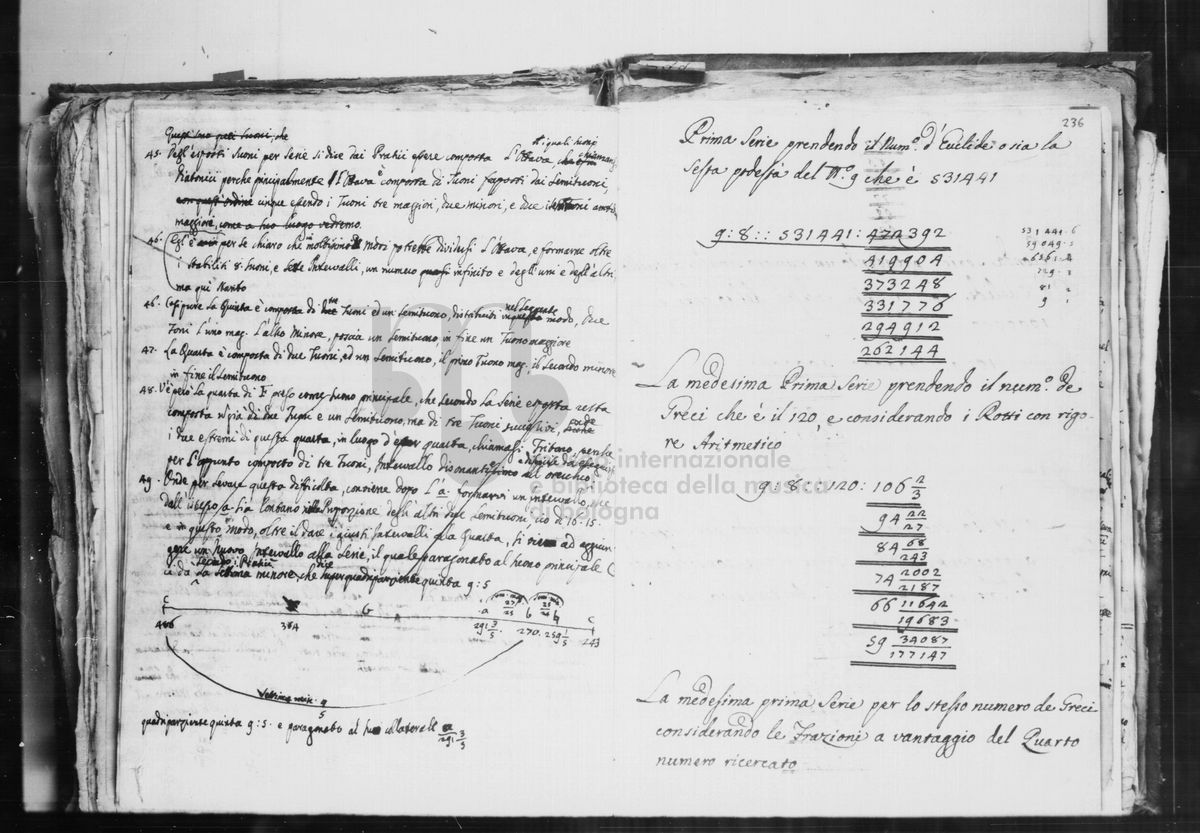 Questi sono quei suoni, che
45. Degl'esposti suoni per serie si dice dai Pratici essere composta L'Ottava
Diatonici perche principalmente L'Ottava è composta di Tuoni frapposti dai Semituoni,
cinque essendo i Tuoni tre maggiori, due minori, e due i Semituoni
maggiore, come a suo luogo vedremo.
46. Egl'è per se chiaro che in moltissimi modi potrebbe dividersi L'Ottava, e formarne oltre
i stabiliti 8. suoni, e sette Intervalli, un numero quasi infinito e degl'uni e degl'altri
ma qui
46. Così pure La Quinta è composta di tre Tuoni ed un Semituono, distribuiti nel seguente modo, due
Toni L'uno mag. L'altro Minore, poscia un Semituono, in fine un Tuono maggiore
47. La Quarta è composta di due Tuoni, ed un Semituono, il primo Tuono mag. il secondo minore
in fine il Semituono
48. V'è però La quarta di F preso come suono principale, che secondo La Serie esposta resta
composta non già di due Tuoni e un Semituono, ma di tre Tuoni successivi, onde
i due estremi di questa quarta, in luogo d'esser quarta, chiamasi Tritono, perche
per L'appunto composto di tre Tuoni, Intervallo dissonantissimo all'orecchio
49. Onde per levare questa difficoltà, conviene dopo L'a. formarvi un intervallo, che
dall'istesso a. sia lontano nella Proporzione degl'altri due Semituoni, cioè 16. 15.
e in questo modo, oltre il dare i giusti Intervalli alla Quarta, si viene ad aggiun-
gere un nuovo Intervallo alla serie, il quale paragonato al suono principale C
ci dà La settima minore, che superquadripartiente quinta 9:5
C G a b ♮ C
27 25
25 24
486 384 291 3/5 270. 259 1/5 243
Settima min. 9
5
quadripartiente quinta 9:5. e paragonato al suo collaterale a
291 3/5
236
Prima Serie prendendo il Num.o d'Euclide o sia la
Sesta podestà del N.o 9 che è 531441
9:8:: 531441: 472392
419904
373248
331776
294912
262144
531441. 6
59049. 5
6561. 4
729. 3
81 2
9 1
La medesima Prima Serie prendendo il num.o de
Greci che è il 120, e considerando i Rotti con rigo-
re Aritmetico
9:8::120: 106 2/3
94 22/27
84 68/243
74 2002/2187
66 11642/19683
59 34087/177147
La medesima prima Serie per lo stesso numero de Greci
considerando le Frazioni a vantaggio del Quarto
numero ricercato
museo internazionale
e biblioteca della musica
di bologna